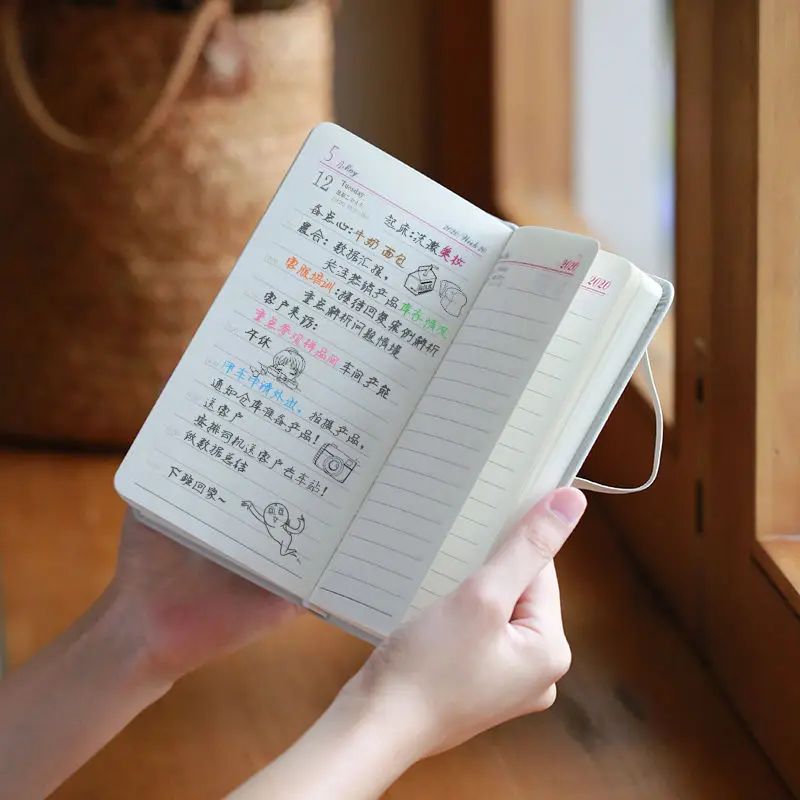 5 May
12 Tuesday
2020 Week 20
起床:洗漱美妆
备点心:牛奶面包
晨会:数据汇报,
关注热销产品库存情况
客服培训:接待回复案例解析
重点解析问题情境
客户来访:
重点参观样品间 车间产能
午休
停车申请外出, 拍摄产品,
通知仓库准备产品!
送客户
安排司机送客户去车站!
做数据总结
下班回家~
2020
2020